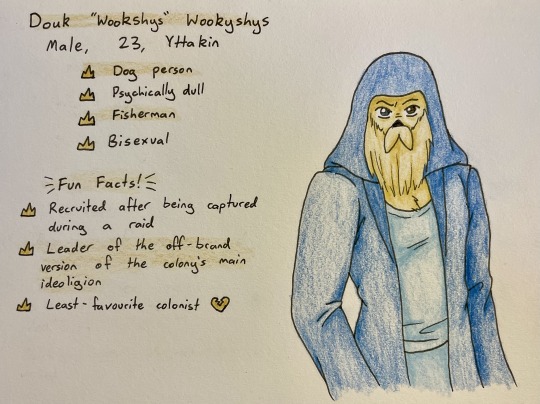 Douk "Wookshys" Wookyshys
Male, 23, Yttakin
Dog person
Psychically dull
Fisherman
Bisexual
Fun Facts!
Recruited after being captured
during a raid
Leader of the off-brand
version of the colony's main
ideoligion
Least-favourite colonist